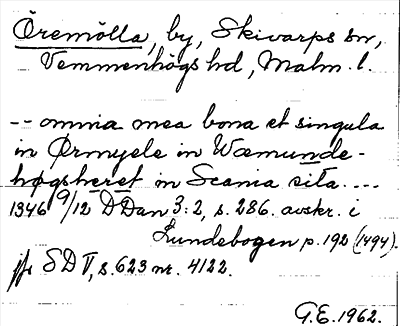 Öremölla, by, Skivarps sn,
Vemmenhögs hd, Malm. l.
-- omnia mea bona et singula
in Ørmyele in Wæmunde-
høgsheret in Scania sita....
1346 9/12 DDan 3:2, s. 286. avskr. i
Lundebogen p. 192 (1494).
jfr SD V, s. 623 nr. 4122.
G.E. 1962.